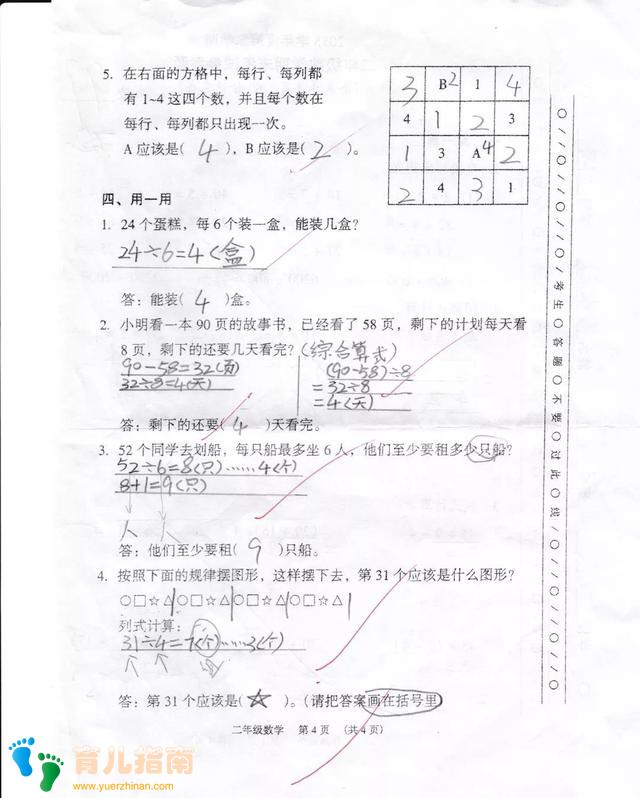 5. 在右面的方格中，每行、每列都
有 1~4 这四个数，并且每个数在
每行、每列都只出现一次。
A 应该是( 4 )，B 应该是( 2 )。
3 B2 1 4
4 1 2 3
1 3 A4 2
2 4 3 1
四、用一用
1. 24 个蛋糕，每 6 个装一盒，能装几盒？
24÷6=4(盒)
答：能装( 4 )盒。
2. 小明看一本 90 页的故事书，已经看了 58 页，剩下的计划每天看
8 页，剩下的还要几天看完？(综合算式)
90-58=32(页) (90-58)÷8
32÷8=4(天) =32÷8
=4(天)
答：剩下的还要( 4 )天看完。
3. 52 个同学去划船，每只船最多坐 6 人，他们至少要租多少只船？
52÷6=8(只)……4(个)
8+1=9(只)
人 人
答：他们至少要租( 9 )只船。
4. 按照下面的规律摆图形，这样摆下去，第 31 个应该是什么图形？
○□☆△|○□☆△|○□☆△|○□☆△|
列式计算：
31÷4=7(个)……3(个)
答：第 31 个应该是( ☆ )。(请把答案画在括号里)
二年级数学 第 4 页 (共 4 页)
○//○//○//○考生○答题○不要○过此○线/○//○//○//○//○
育儿指南
www.yuerzhinan.com